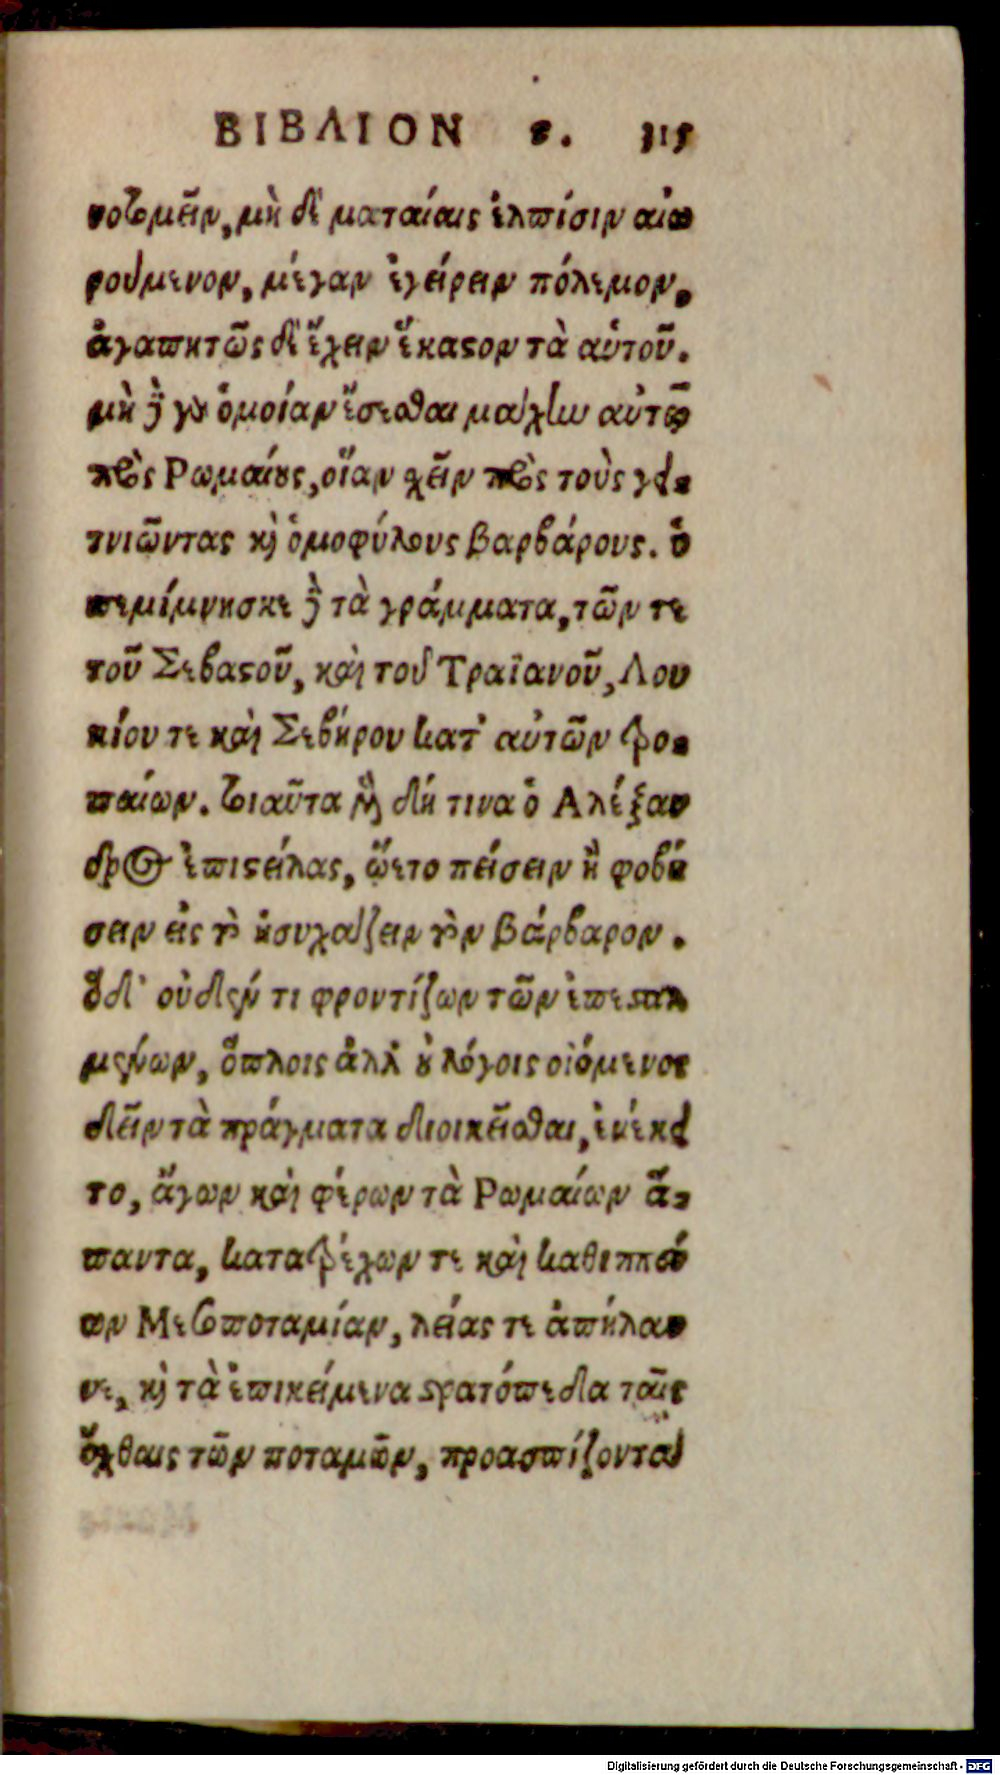 ΒΙΒΛΙΟΝ ϛ. 315
νοτομεῖν, μὴ δὲ ματαίαις ἐλπίσιν αἰω
ρούμενον, μέγαν ἐγείρειν πόλεμον,
ἀγαπητῶς δὲ ἔχειν ἕκαστον τὰ αὑτοῦ.
μὴ δὲ γὰρ ὁμοίαν ἔσεσθαι μάχην αὐτῷ
πρὸς Ρωμαίους, οἵαν σχεῖν πρὸς τοὺς γει-
τνιῶντας καὶ ὁμοφύλους βαρβάρους. ὑ
πεμίμνησκε δὲ τὰ γράμματα, τῶν τε
τοῦ Σεβαστοῦ, καὶ τοῦ Τραϊανοῦ, Λου
κίου τε καὶ Σεβήρου κατ' αὐτῶν τρο-
παίων. τοιαῦτα μὲν δή τινα ὁ Αλέξαν
δρος ἐπιστείλας, ᾤετο πείσειν ἢ φοβή
σειν εἰς τὸ ἡσυχάζειν τὸν βάρβαρον.
ὁ δὲ οὐδέν τι φροντίζων τῶν ἐπεσταλ
μένων, ὅπλοις ἀλλ' οὐ λόγοις οἰόμενος
δεῖν τὰ πράγματα διοικεῖσθαι, ἐνέκει
το, ἄγων καὶ φέρων τὰ Ρωμαίων ἅ-
παντα, κατατρέχων τε καὶ καθιππεύ
ων Μεσοποταμίαν, λείας τε ἀπήλαυ
νε, καὶ τὰ ἐπικείμενα στρατόπεδα ταῖς
ὄχθαις τῶν ποταμῶν, προασπίζοντα
Digitalisierung gefördert durch die Deutsche Forschungsgemeinschaft - DFG